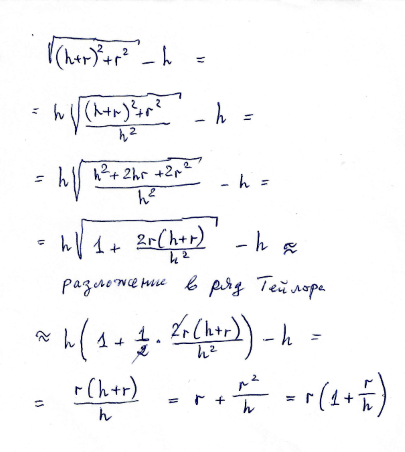 √((h+r)²+r²) - h =
= h√(((h+r)²+r²)/h²) - h =
= h√((h²+2hr+2r²)/h²) - h =
= h√(1 + 2r(h+r)/h²) - h ≈
разложение в ряд Тейлора
≈ h(1 + 1/2 · 2r(h+r)/h²) - h =
= r(h+r)/h = r + r²/h = r(1 + r/h)